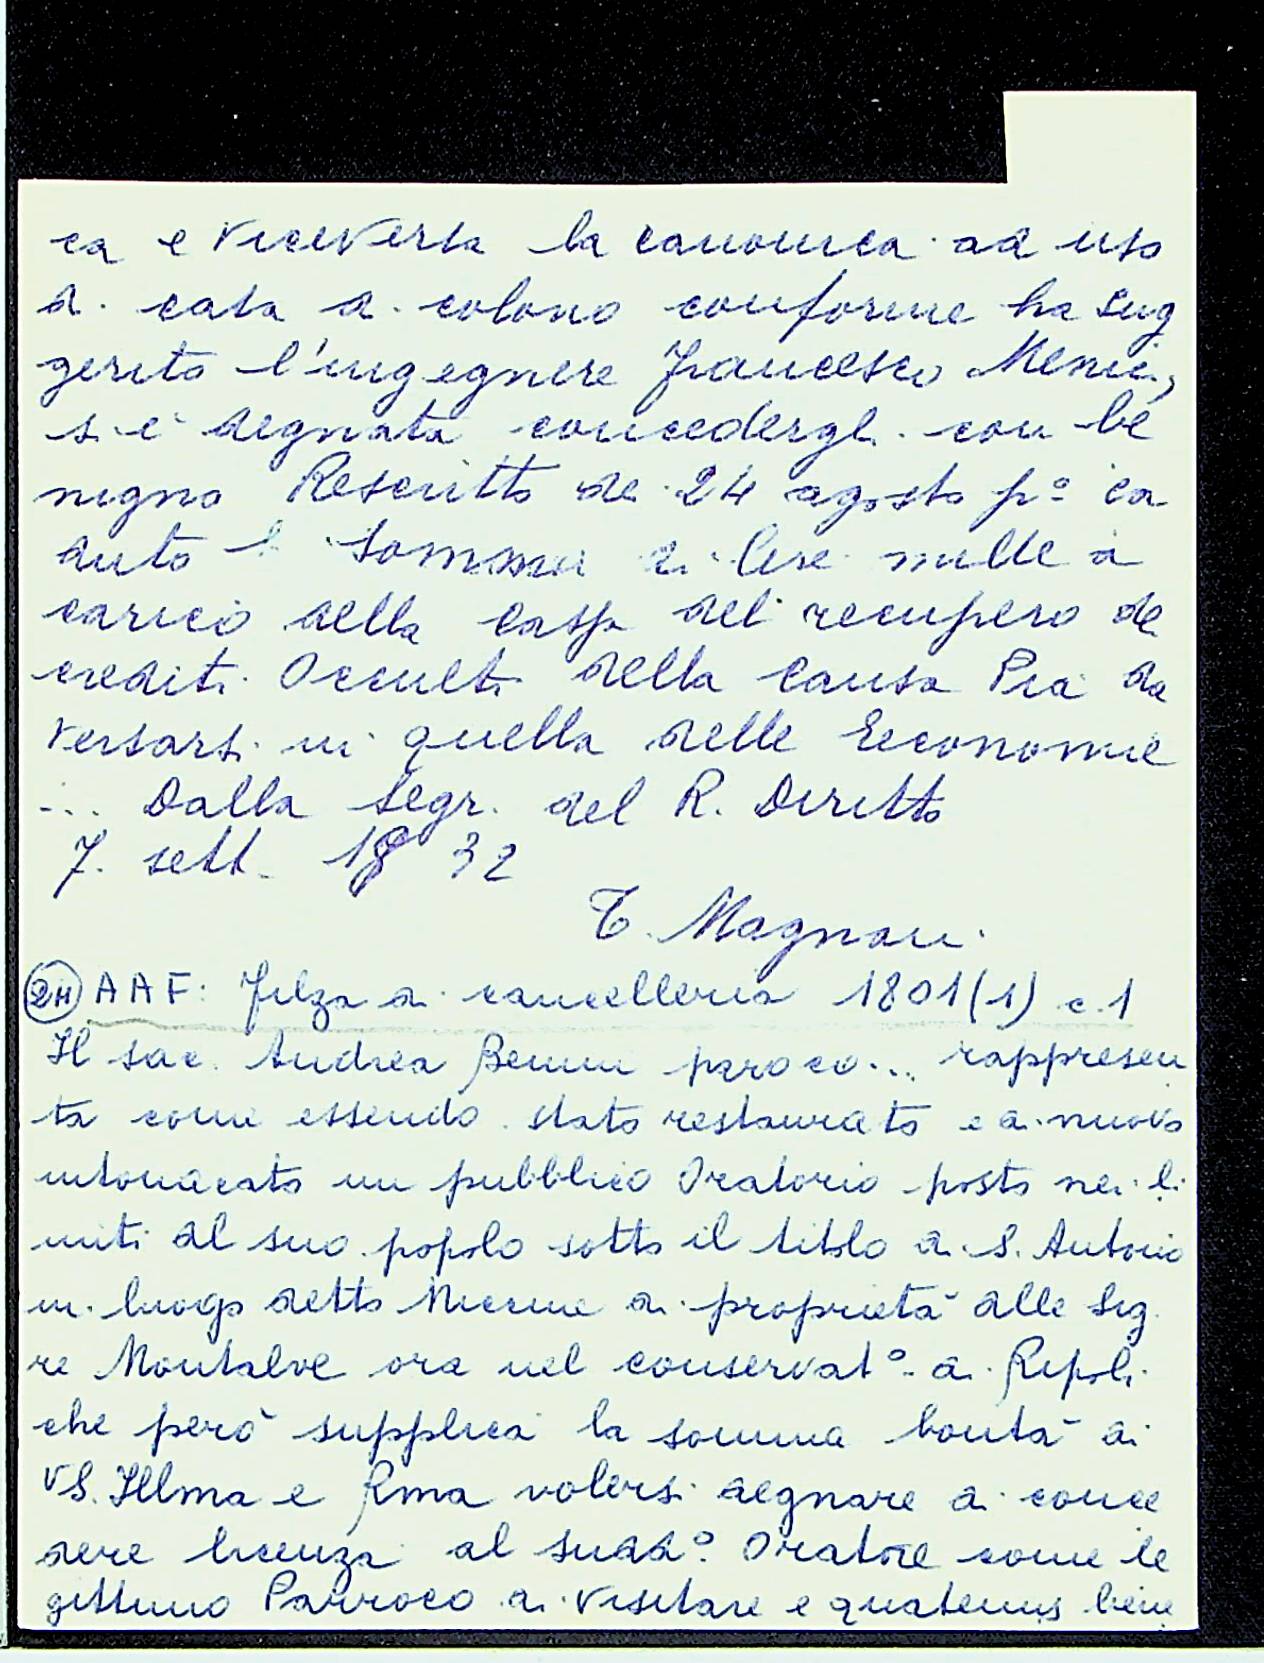 ca e viceversa la canonica ad uso
di casa di colono conforme ha sug
gerito l'ingegnere Francesco Menici,
si è degnata concedergli con be
nigno Rescritto de 24 agosto pº ca
duto l somma di lire mille a
carico della cassa del recupero de
crediti Occulti della Causa Pia da
versarsi in quella delle Economie
... Dalla Segr. del R. Diritto
7. sett. 1832
T. Magnani
(2H) AAF: Filza di cancelleria 1801(1) c.1
Il sac. Andrea Benini paroco... rappresen
ta come essendo stato restaurato e di nuovo
intonacato un pubblico Oratorio posto nei li
miti del suo popolo sotto il titolo di S. Antonio
in luogo detto di proprietà delle Sig.
re Montalve ora nel conservatº di Ripoli
che però supplica la somma bontà di
VS. Illma e Rma volersi degnare di conce
dere licenza al suddº Oratore come le
gittimo Parroco di visitare e quatenus bene